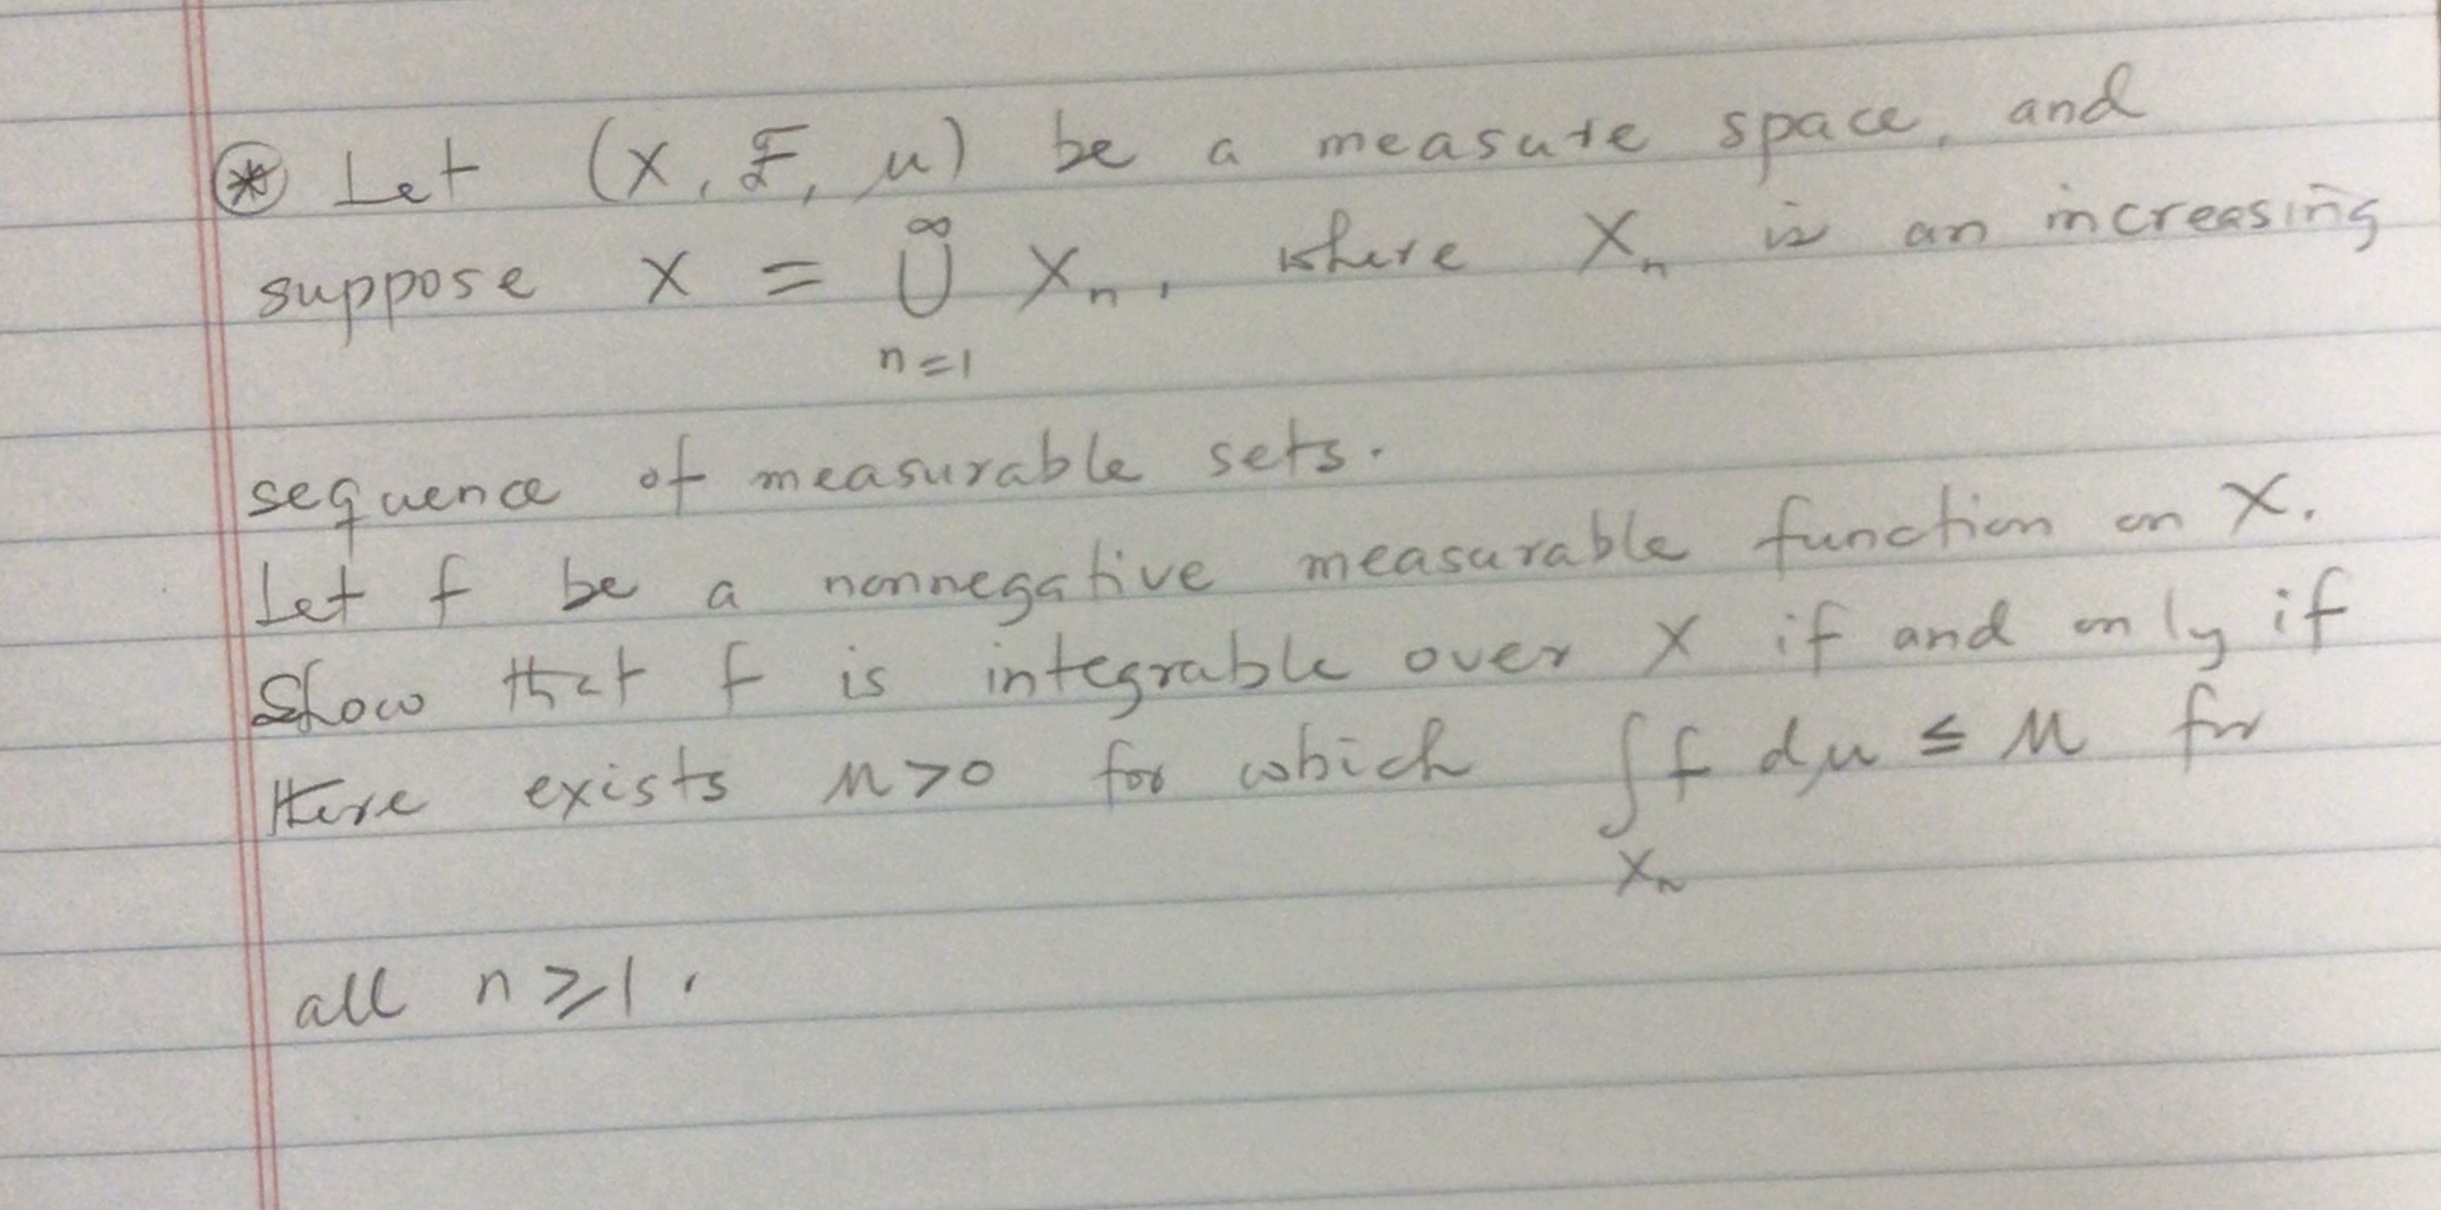 ⊛ Let (X, F, μ) be a measure space, and
suppose X = ∞⋃n=1 Xn, where Xn is an increasing
sequence of measurable sets.
Let f be a nonnegative measurable function on X.
Show that f is integrable over X if and only if
there exists M>0 for which ∫Xn f dμ ≤ M for
all n≥1.